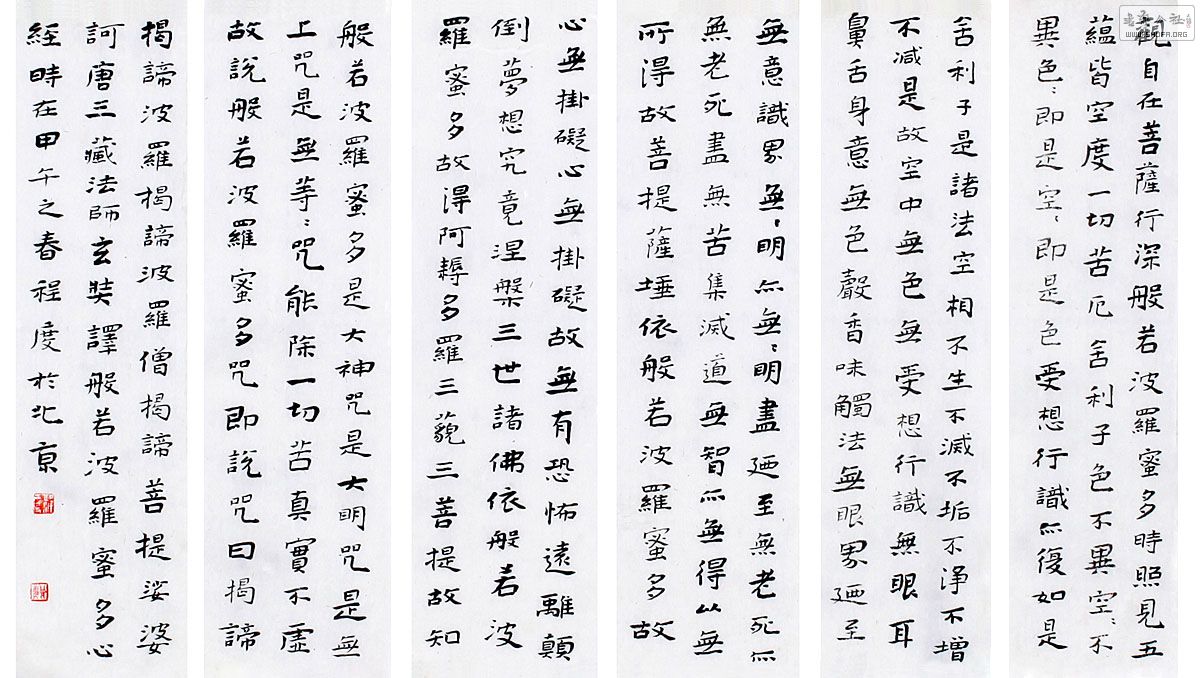 觀自在菩薩行深般若波羅蜜多時照見五
蘊皆空度一切苦厄舍利子色不異空〻不
異色〻即是空〻即是色受想行識亦復如是
舍利子是諸法空相不生不滅不垢不淨不增
不減是故空中無色無受想行識無眼耳
鼻舌身意無色聲香味觸法無眼界廼至
無意識界無〻明亦無〻明盡廼至無老死亦
無老死盡無苦集滅道無智亦無得以無
所得故菩提薩埵依般若波羅蜜多故
心無掛礙心無掛礙故無有恐怖遠離顛
倒夢想究竟涅槃三世諸佛依般若波
羅蜜多故得阿耨多羅三藐三菩提故知
般若波羅蜜多是大神咒是大明咒是無
上咒是無等〻咒能除一切苦真實不虛
故說般若波羅蜜多咒即說咒曰揭諦
揭諦波羅揭諦波羅僧揭諦菩提娑婆
訶唐三藏法師玄奘譯般若波羅蜜多心
經時在甲午之春程度於北京